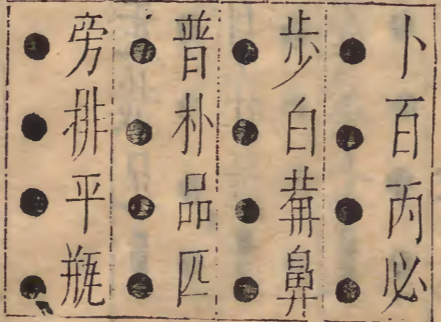 卜●百●丙●必●
步●白●葡●鼻●
普●朴●品●匹●
旁●排●平●瓶●